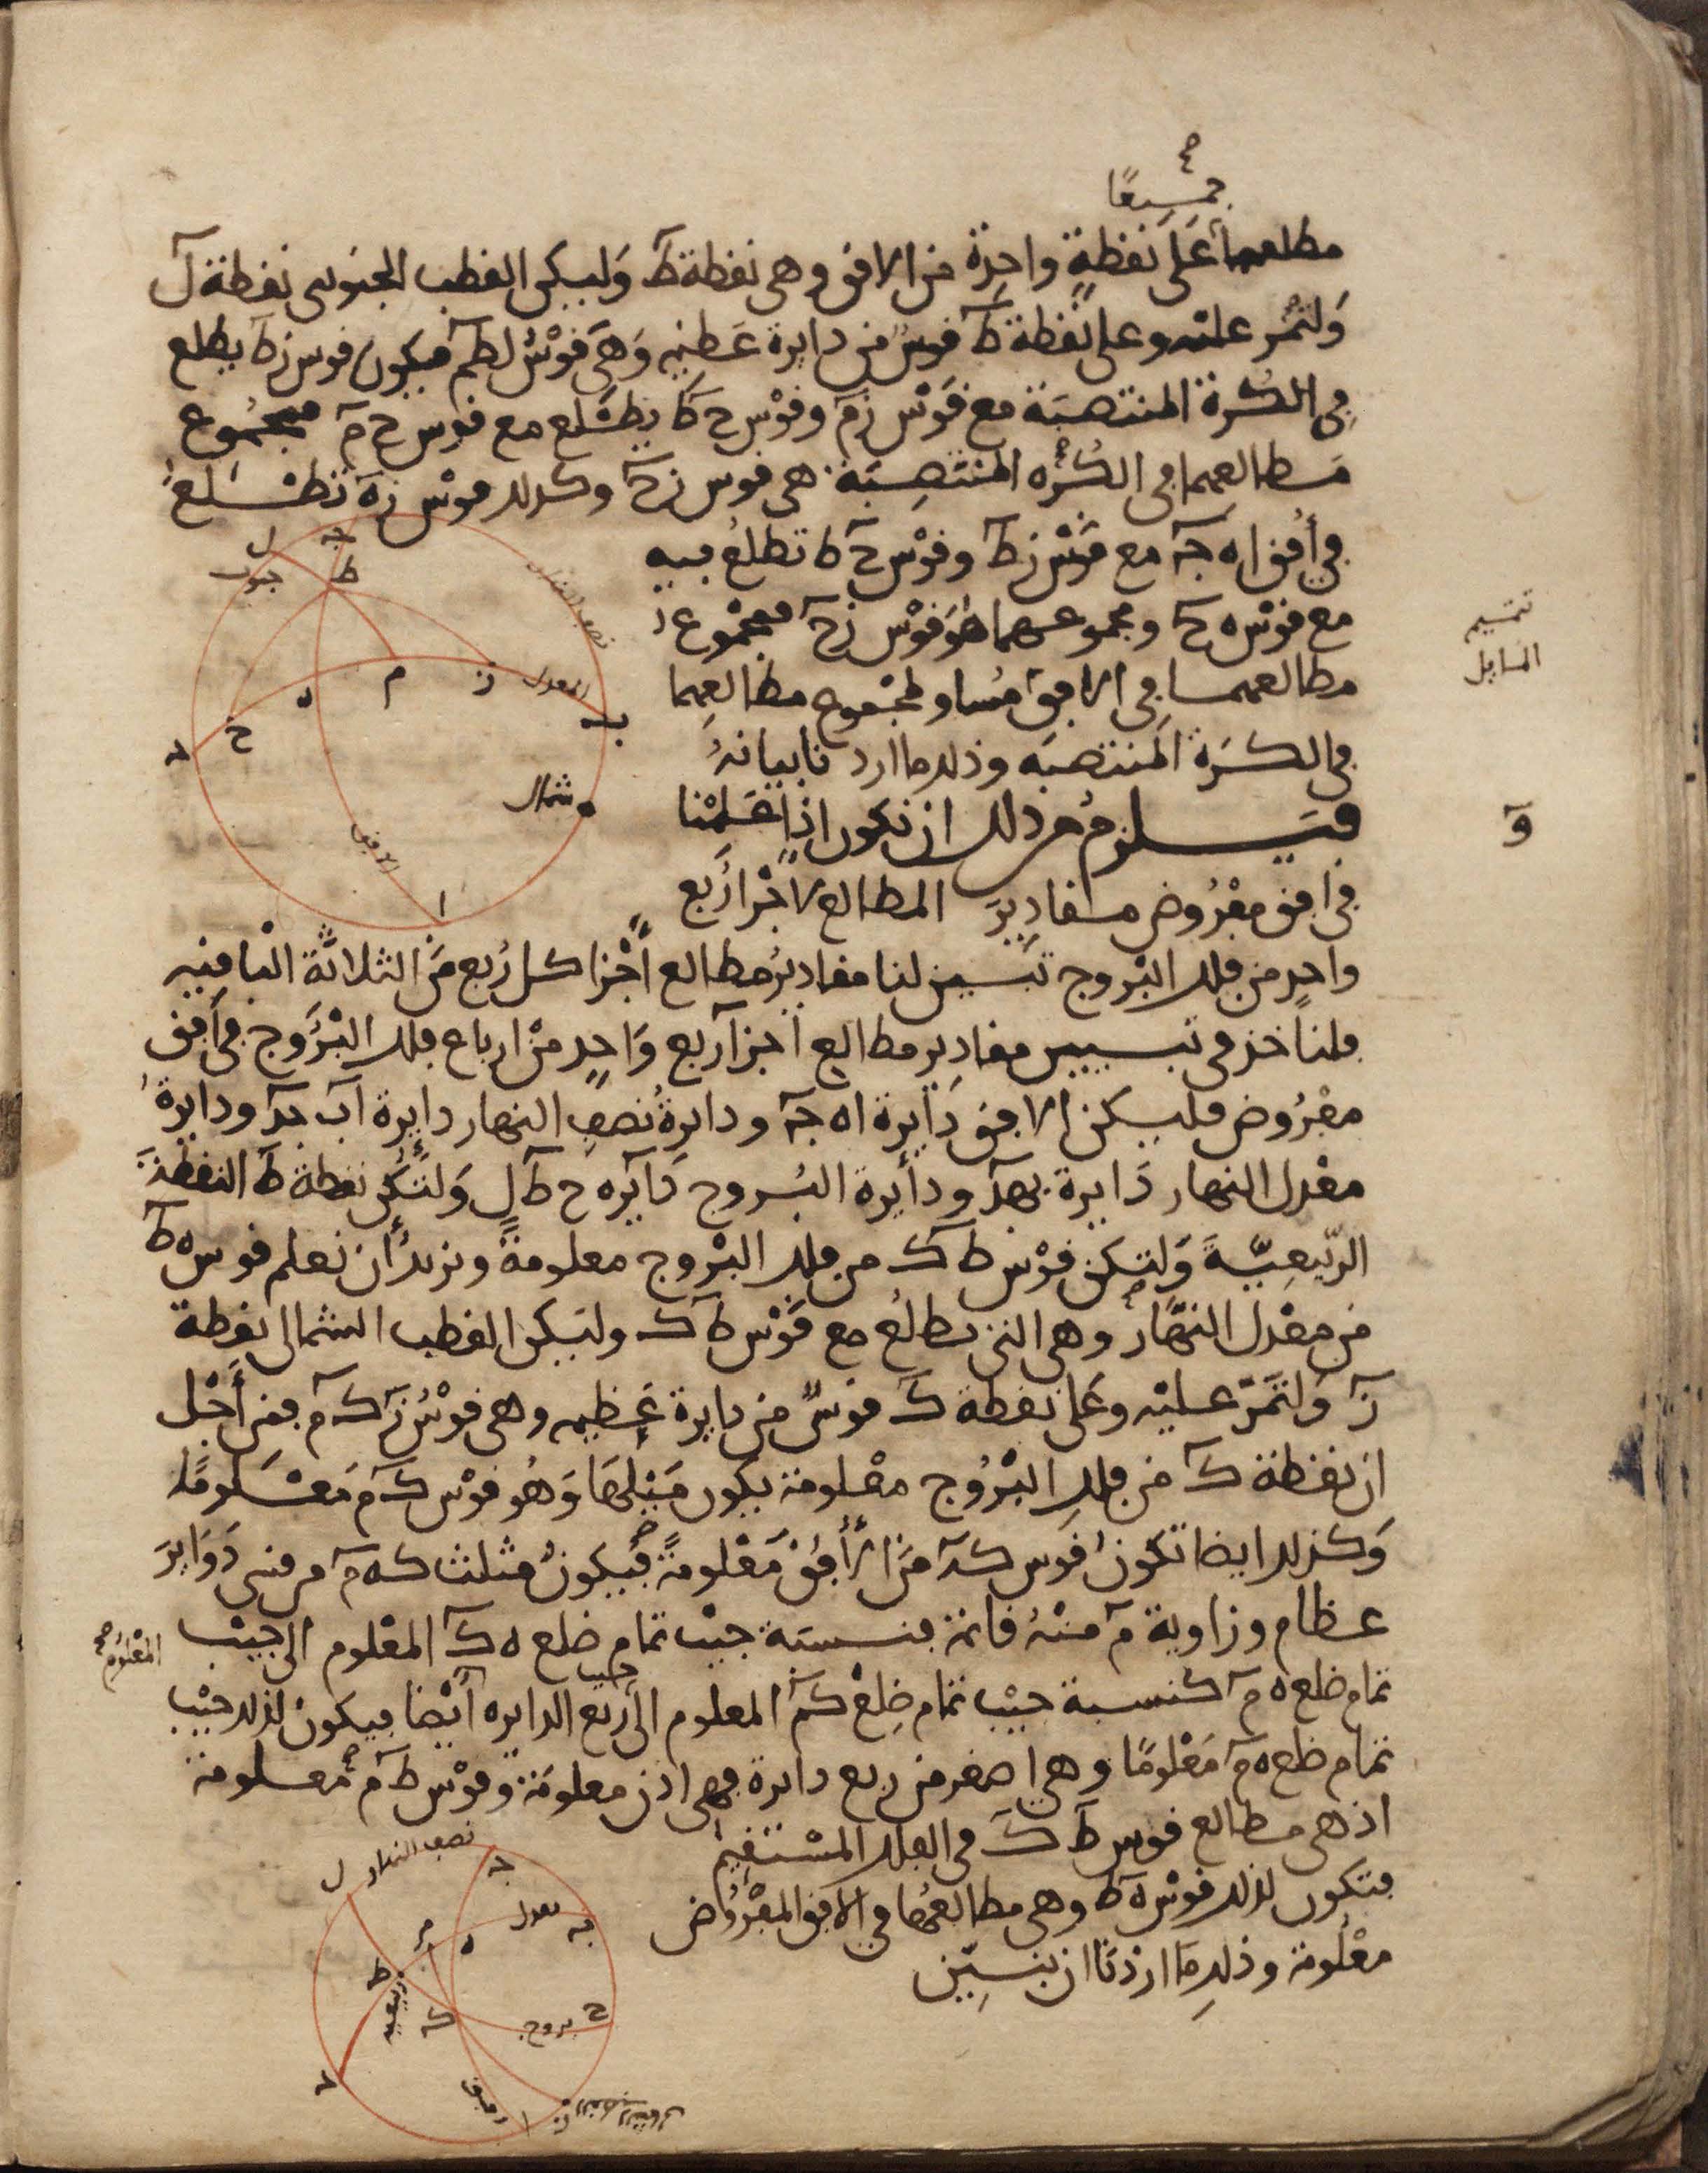 جميعًا
مطلعهما على نقطة واحدة من الافق وهي نقطة ط وليكن القطب الجنوبي نقطة ل
ولتمر عليه وعلى نقطة ط قوس من دايرة عظيمه وهي قوس ل ط م فيكون قوس ز ط يطلع
في الكرة المنتصبة مع قوس ز م وقوس ح ط يطلع مع قوس ح م فمجموع
مطالعهما في الكره المنتصبة هي قوس ز ح وكذلك قوس ز ه تطلع
في أفق ا ه ج مع قوس ز ط وقوس ح ط تطلع فيه
مع قوس ه ح ومجموعهما هو قوس ز ح فمجموع
مطالعهما في الافق مساو لمجموع مطالعهما
في الكرة المنتصبه وذلك ما اردنا بيانه
فيلزم من ذلك ان نكون اذا علمنا
في افق مفروض مقادير المطالع لاجزا ربع
واحد من فلك البروج تبين لنا مقادير مطالع أجزا كل ربع من الثلاثة الباقيه
فلناخذ في تبيين مقادير مطالع اجزا ربع واحد من ارباع فلك البروج في أفق
مفروض فليكن الافق دايرة ا ه ج ودايرة نصف النهار دايرة ا ب ج د ودايرة
معدل النهار دايرة ب ه د ودايرة البروج دايره ح ط ل ولتكن نقطة ط النقطة
الربيعية ولتكن قوس ط ك من فلك البروج معلومة ونريد أن نعلم قوس ه ط
من معدل النهار وهي التي تطالع مع قوس ط ك وليكن القطب الشمالي نقطة
ز ولتمر عليه وعلى نقطة ك قوس من دايرة عظيمه وهي قوس ز ك م فمن أجل
ان نقطة ك من فلك البروج معلومة يكون ميلها وهو قوس ك م معلومًا
وكذلك ايضا تكون قوس ك ه من الأفق معلومة فيكون مثلث ك ه م من قسي دواير
عظام وزاوية م منه قائمة فنسبة جيب تمام ضلع ه ك المعلوم الى جيب
المعلوم
تمام ضلع ه م كنسبة جيب تمام ضلع ك م المعلوم الى جيب ربع الدايره أيضا فيكون لذلك جيب
تمام ضلع ه م معلومًا وهي اصغر من ربع دايرة فهي اذن معلومة وقوس ط م معلومة
اذ هي مطالع قوس ط ك في الفلك المستقيم
فتكون لذلك قوس ه ط وهي مطالعها في الافق المفروض
معلومة وذلك ما اردنا ان نبين
تتميم
المسايل
و
ل
ج
جنوب
ط
نصف النهار
المعدل
ز
م
ه
ح
د
ب
شمال
الافق
ا
نصف النهار
ل
ج
ب
معدل
ه
م
ط
ربيعيه
ك
ح
بروج
د
افق
ا
ز
القطب الشمالي